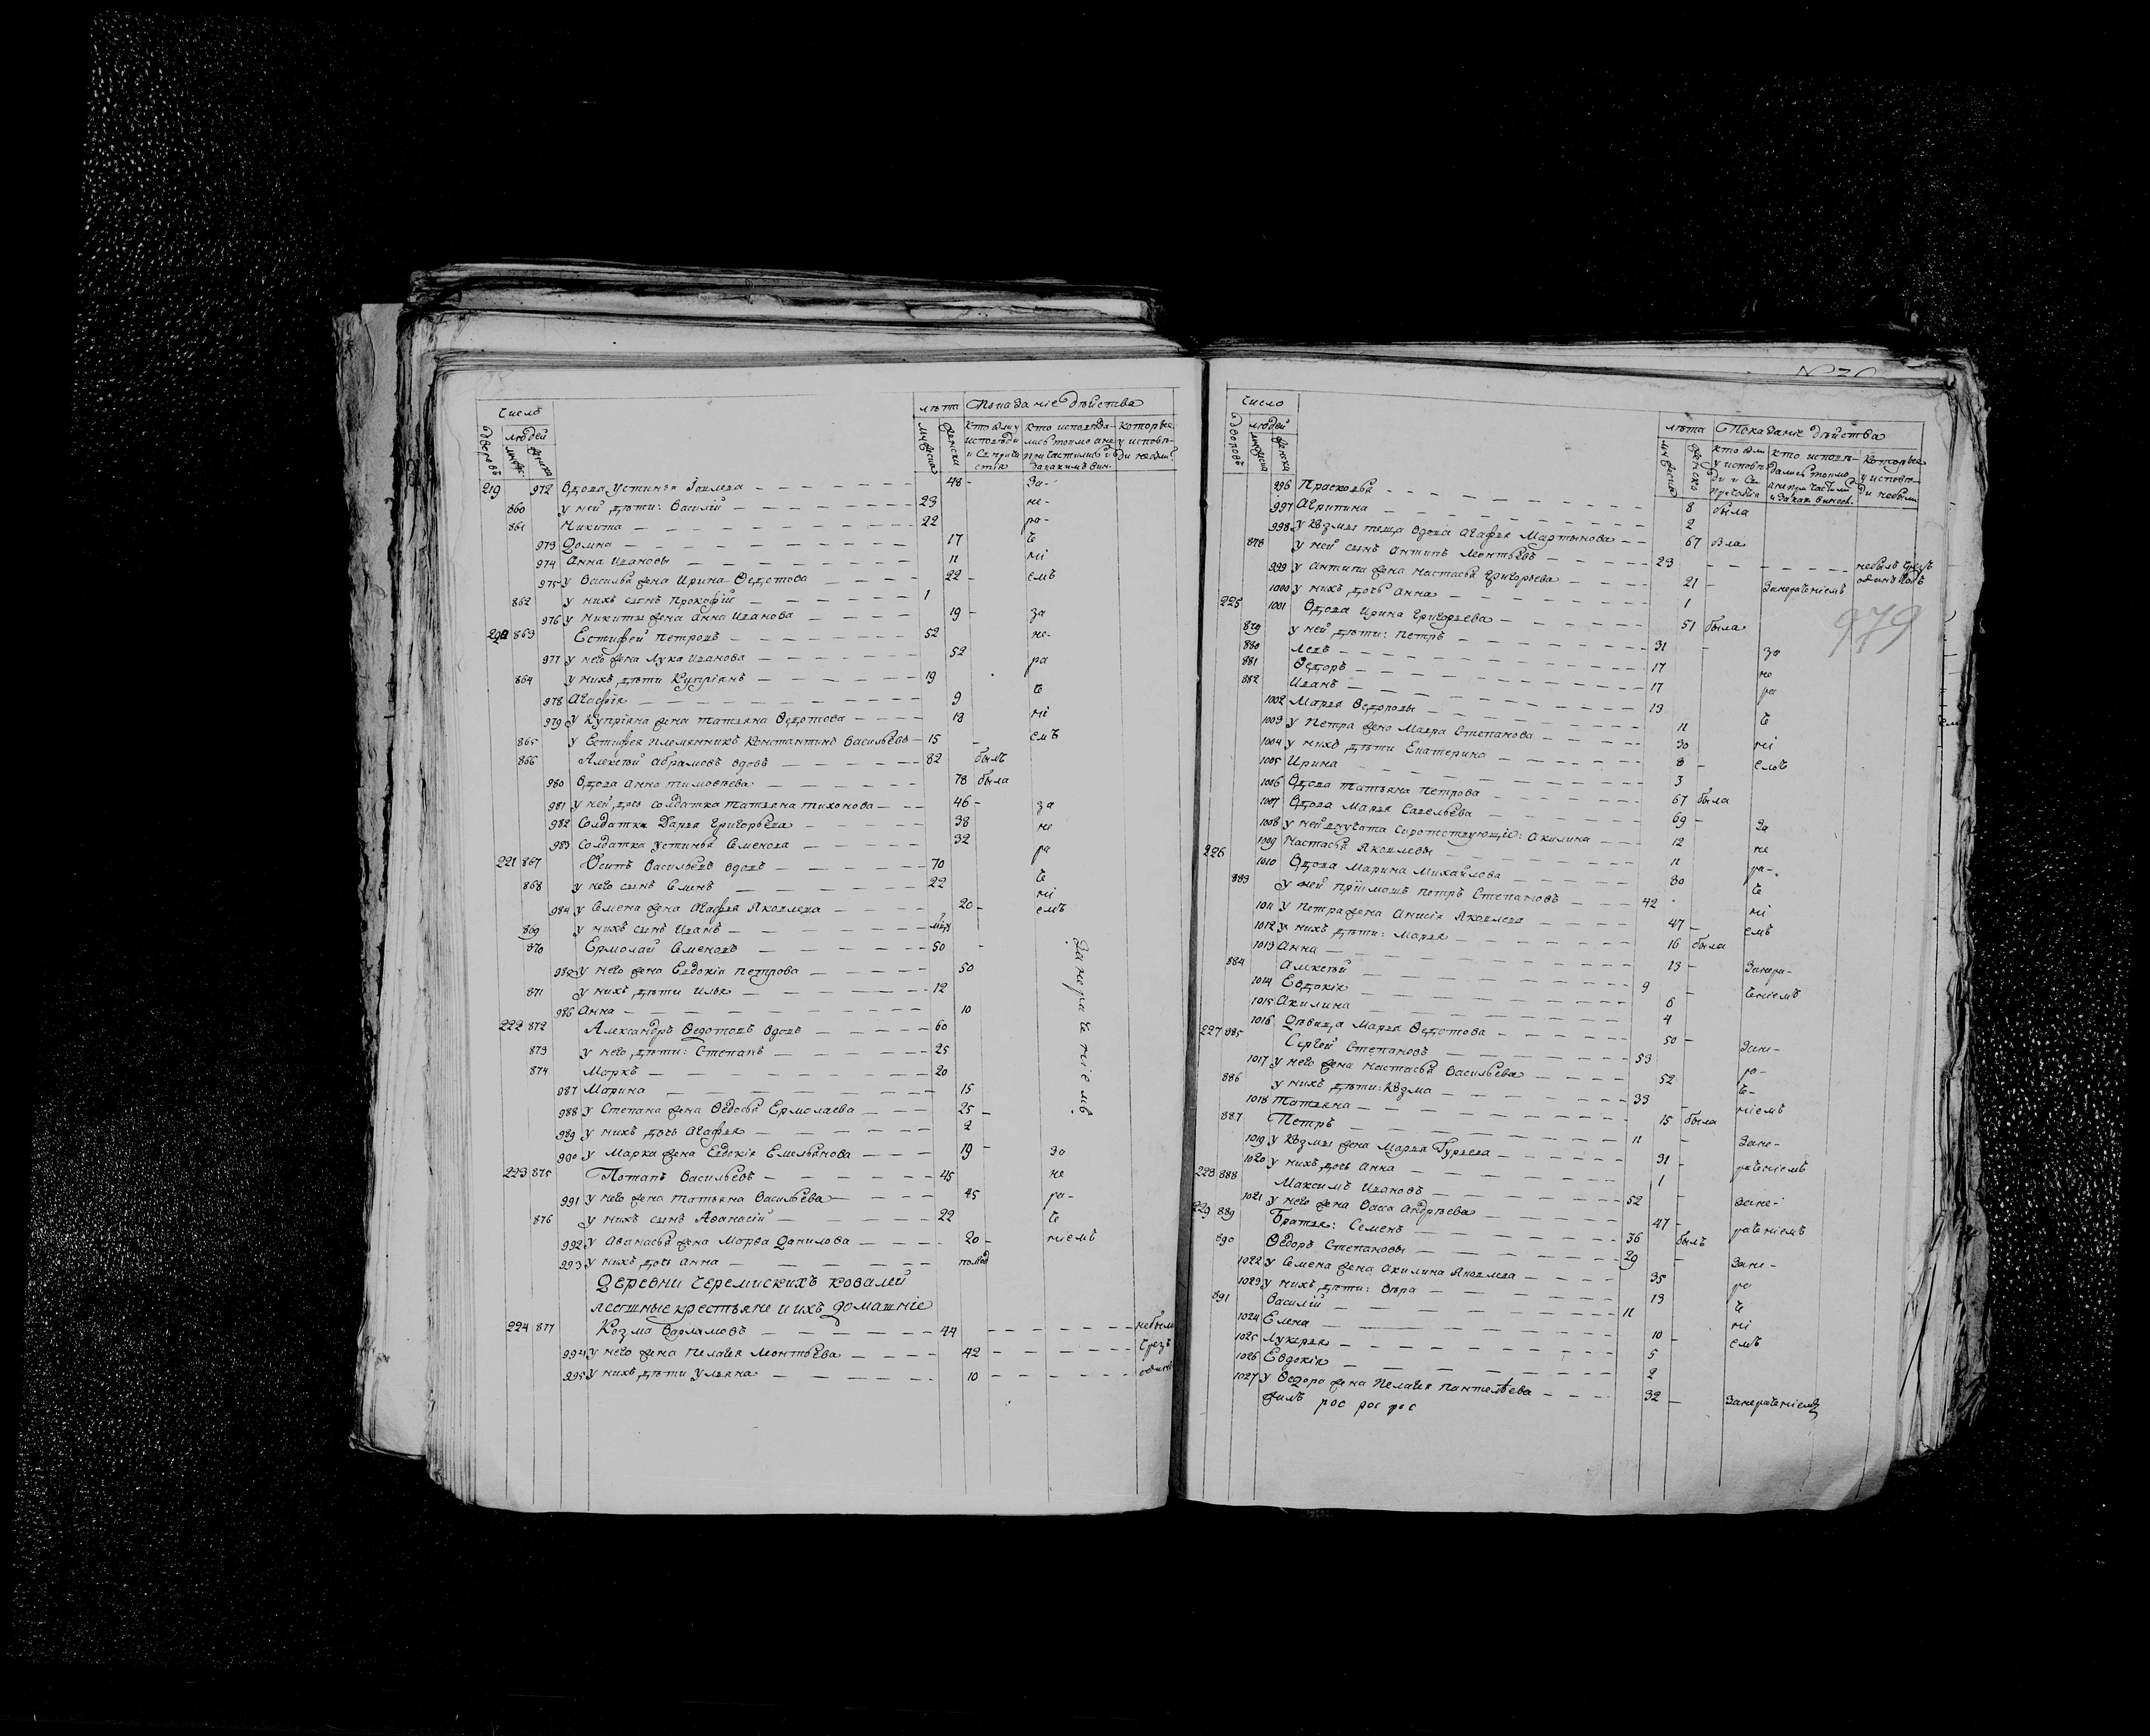 число лѣта Показаніе дѣйства
дворовъ людей мужеска женски кто были у исповѣди и Св. причастія кто исповѣдались токмо а не причастились и за какимъ вин. которые у исповѣди небыли
219 972 Вдова Устинья Іовлева 48 за-
860 у ней дѣти: Василій 23 не-
861 Никита 22 ра-
973 Домна 17 че
974 Анна Ивановы 11 ні
975 у Василья жена Ирина Ѳедотова 22 емъ
862 у нихъ сынъ Прокофій 1
976 у Никиты жена Анна Иванова 19 за
220 863 Естифей Петровъ 52 не-
977 у него жена Лукія Иванова 52 ра
864 у нихъ дѣти Купріанъ 19
978 Агафія 9 че
979 у Купріяна жена Татьяна Ѳедотова 18 ні
865 у Естифея племянникъ Константинъ Васильевъ 15 емъ
866 Алексѣй Абрамовъ вдовъ 82 былъ
980 Вдова Анна Тимофѣева 78 была
981 у ней дочь солдатка Татьяна Тихонова 46 за
982 Солдатка Дарья Григорьева 38 не
983 Солдатка Устинья Семенова 32 ра
221 867 Осипъ Васильевъ вдовъ 70
868 у него сынъ Семенъ 22 че
984 у Семена жена Агафья Яковлева 20 ні емъ
869 у нихъ сынъ Иванъ
870 Ермолай Семеновъ 50
985 у него жена Евдокія Петрова 50
871 у нихъ дѣти Илья 12
986 Анна 10
занераченіемъ
222 872 Александръ Ѳедотовъ вдовъ 60
873 у него дѣти: Степанъ 25
874 Маркъ 20
987 Марина 15
988 у Степана жена Ѳедосья Ермолаева 25
989 у нихъ дочь Агафья 2
990 у Марка жена Евдокія Емельянова 19 за
223 875 Потапъ Васильевъ 45 не
991 у него жена Татьяна Васильева 45 ра-
876 у нихъ сынъ Аѳанасій 22 че
992 у Аѳанасья жена Марѳа Данилова 20 ніемъ
993 у нихъ дочь Анна полгод
Деревни Черемискихъ Ковалей
ясашные крестьяне и ихъ домашніе
224 877 Козма Варламовъ 44 небыли
994 у него жена Пелагея Леонтьева 42 чрезъ
995 у нихъ дѣти Ульяна 10 одинъ
число лѣта Показаніе дѣйства
дворовъ людей мужеска женска кто были у исповѣди и Св. причастія кто исповѣдались токмо а не причастились и за какимъ винословіемъ которые у исповѣди небыли
996 Прасковья 8 была
997 Агрипина 2
998 у Козмы теща вдова Агафья Мартынова 67 была
878 у ней сынъ Антипъ Леонтьевъ 23 небылъ чрезъ одинъ годъ
999 у Антипа жена Настасья Григорьева 21 занераченіемъ
1000 у нихъ дочь Анна 1
979
225 1001 Вдова Ирина Григорьева 51 была
879 у ней дѣти: Петръ 31 за
880 Левъ 17 не
881 Ѳедоръ 17 ра
882 Иванъ 13
1002 Марья Ѳедоровы 11 че
1003 у Петра жена Мавра Степанова 30 ні
1004 у нихъ дѣти Екатерина 8 емъ
1005 Ирина 3
1006 Вдова Татьяна Петрова 67 была
1007 Вдова Марья Савельева 69 за
1008 у ней внучата сиротствующіе: Акилина 12 не
1009 Настасья Яковлевы 11 ра-
226 1010 Вдова Марина Михайлова 80 че
883 у ней пріимошъ Петръ Степановъ 42 ні
1011 у Петра жена Анисія Яковлева 47 емъ
1012 у нихъ дѣти: Марья 16 была
1013 Анна 13 занера-
884 Алексѣй 9 ченіемъ
1014 Евдокія 6
1015 Акилина 4
1016 Дѣвица Марья Ѳедотова 50 зане-
227 885 Сергей Степановъ 53 ра-
1017 у него жена Настасья Васильева 52 че-
886 у нихъ дѣти: Козма 33 ніемъ
1018 Татьяна 15 была
887 Петръ 11 зане-
1019 у Козмы жена Марья Гурьева 31 раченіемъ
1020 у нихъ дочь Анна 1
228 888 Максимъ Ивановъ 52 зане-
1021 у него жена Васса Андреева 47 раченіемъ
229 889 Братья: Семенъ 36 былъ
890 Ѳедоръ Степановы 29 зане-
1022 у Семена жена Акилина Яковлева 35 ра
1023 у нихъ дѣти: Вѣра 13 че
891 Василій 11 ні
1024 Елена 10 емъ
1025 Лукерья 5
1026 Евдокія 2
1027 у Ѳедора жена Пелагея Пантелѣева 32 занераченіемъ